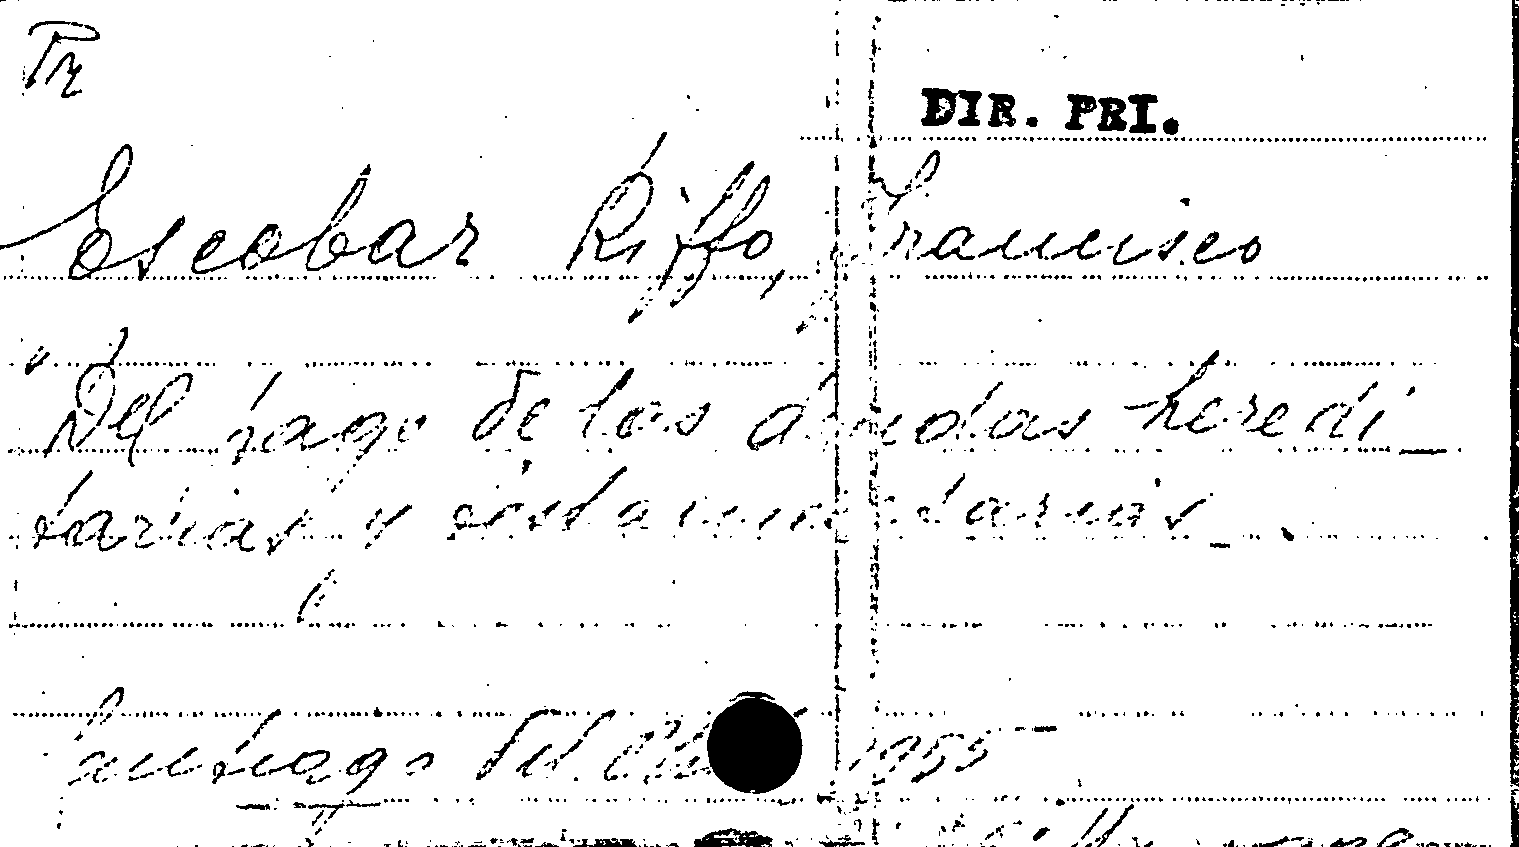 Tr
DIR. PRI.
Escobar Riffo, Francisco
"Del pago de las deudas heredi_
tarias y testamentarias_.
Santiago Ed. 1955